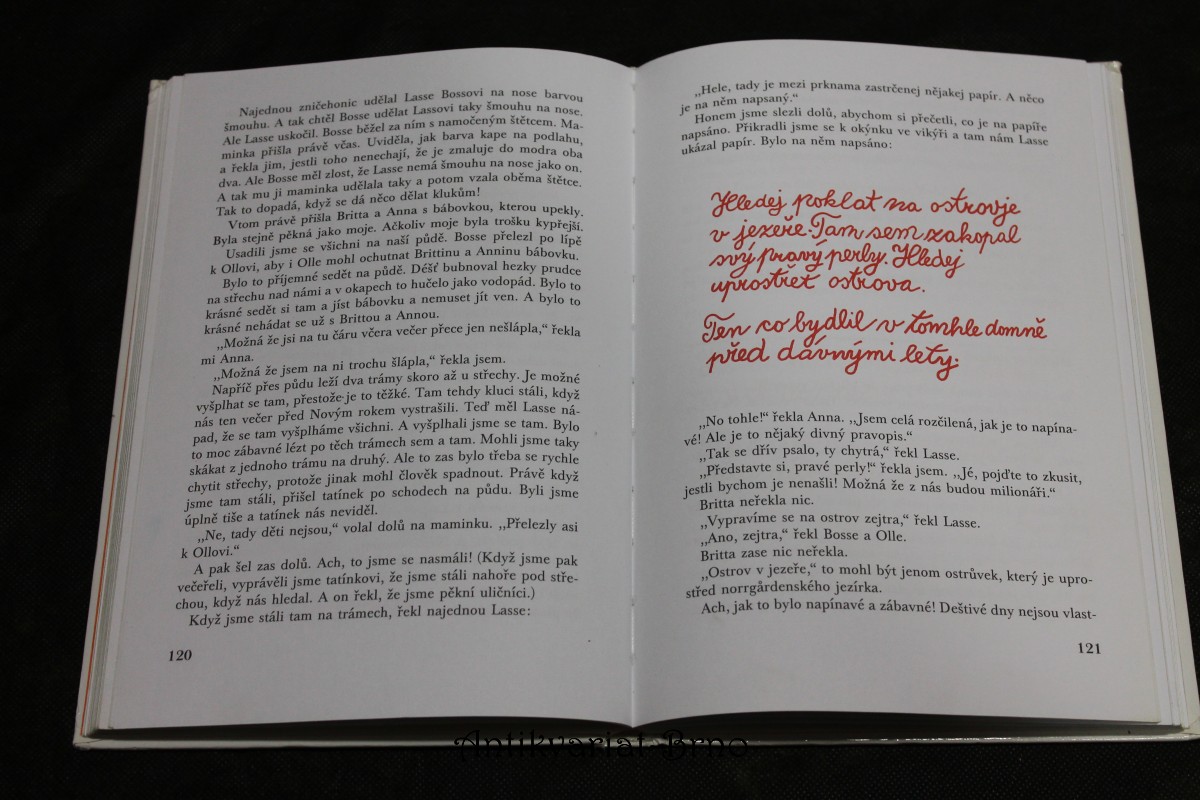 Najednou zničehonic udělal Lasse Bossovi na nose barvou
šmouhu. A tak chtěl Bosse udělat Lassovi taky šmouhu na nose.
Ale Lasse uskočil. Bosse běžel za ním s namočeným štětcem. Ma-
minka přišla právě včas. Uviděla, jak barva kape na podlahu,
a řekla jim, jestli toho nenechají, že je zmaluje do modra oba
dva. Ale Bosse měl zlost, že Lasse nemá šmouhu na nose jako on.
A tak mu ji maminka udělala taky a potom vzala oběma štětce.
Tak to dopadá, když se dá něco dělat klukům!
Vtom právě přišla Britta a Anna s bábovkou, kterou upekly.
Byla stejně pěkná jako moje. Ačkoliv moje byla trošku kypřejší.
Usadili jsme se všichni na naší půdě. Bosse přelezl po lípě
k Ollovi, aby i Olle mohl ochutnat Brittinu a Anninu bábovku.
Bylo to příjemné sedět na půdě. Déšť bubnoval hezky prudce
na střechu nad námi a v okapech to hučelo jako vodopád. Bylo to
krásné sedět si tam a jíst bábovku a nemuset jít ven. A bylo to
krásné nehádat se už s Brittou a Annou.
„Možná že jsi na tu čáru včera večer přece jen nešlápla,“ řekla
mi Anna.
„Možná že jsem na ni trochu šlápla,“ řekla jsem.
Napříč přes půdu leží dva trámy skoro až u střechy. Je možné
vyšplhat se tam, přestože je to těžké. Tam tehdy kluci stáli, když
nás ten večer před Novým rokem vystrašili. Teď měl Lasse ná-
pad, že se tam vyšplháme všichni. A vyšplhali jsme se tam. Bylo
to moc zábavné lézt po těch trámech sem a tam. Mohli jsme taky
skákat z jednoho trámu na druhý. Ale to zas bylo třeba se rychle
chytit střechy, protože jinak mohl člověk spadnout. Právě když
jsme tam stáli, přišel tatínek po schodech na půdu. Byli jsme
úplně tiše a tatínek nás neviděl.
„Ne, tady děti nejsou,“ volal dolů na maminku. „Přelezly asi
k Ollovi.“
A pak šel zas dolů. Ach, to jsme se nasmáli! (Když jsme pak
večeřeli, vyprávěli jsme tatínkovi, že jsme stáli nahoře pod stře-
chou, když nás hledal. A on řekl, že jsme pěkní uličníci.)
Když jsme stáli tam na trámech, řekl najednou Lasse:
120
„Hele, tady je mezi prknama zastrčenej nějakej papír. A něco
je na něm napsaný.“
Honem jsme slezli dolů, abychom si přečetli, co je na papíře
napsáno. Přikradli jsme se k okýnku ve vikýři a tam nám Lasse
ukázal papír. Bylo na něm napsáno:
Hledej poklat na ostrovje
v jezeře. Tam sem zakopal
svý pravý perly. Hledej
uprostřet ostrova.
Ten co bydlil v tomhle domně
před dávnými lety.
„No tohle!“ řekla Anna. „Jsem celá rozčilená, jak je to napína-
vé! Ale je to nějaký divný pravopis.“
„Tak se dřív psalo, ty chytrá,“ řekl Lasse.
„Představte si, pravé perly!“ řekla jsem. „Jé, pojďte to zkusit,
jestli bychom je nenašli! Možná že z nás budou milionáři.“
Britta neřekla nic.
„Vypravíme se na ostrov zejtra,“ řekl Lasse.
„Ano, zejtra,“ řekl Bosse a Olle.
Britta zase nic neřekla.
„Ostrov v jezeře,“ to mohl být jenom ostrůvek, který je upro-
střed norrgårdenského jezírka.
Ach, jak to bylo napínavé a zábavné! Deštivé dny nejsou vlast-
121
Antikvariat Brno